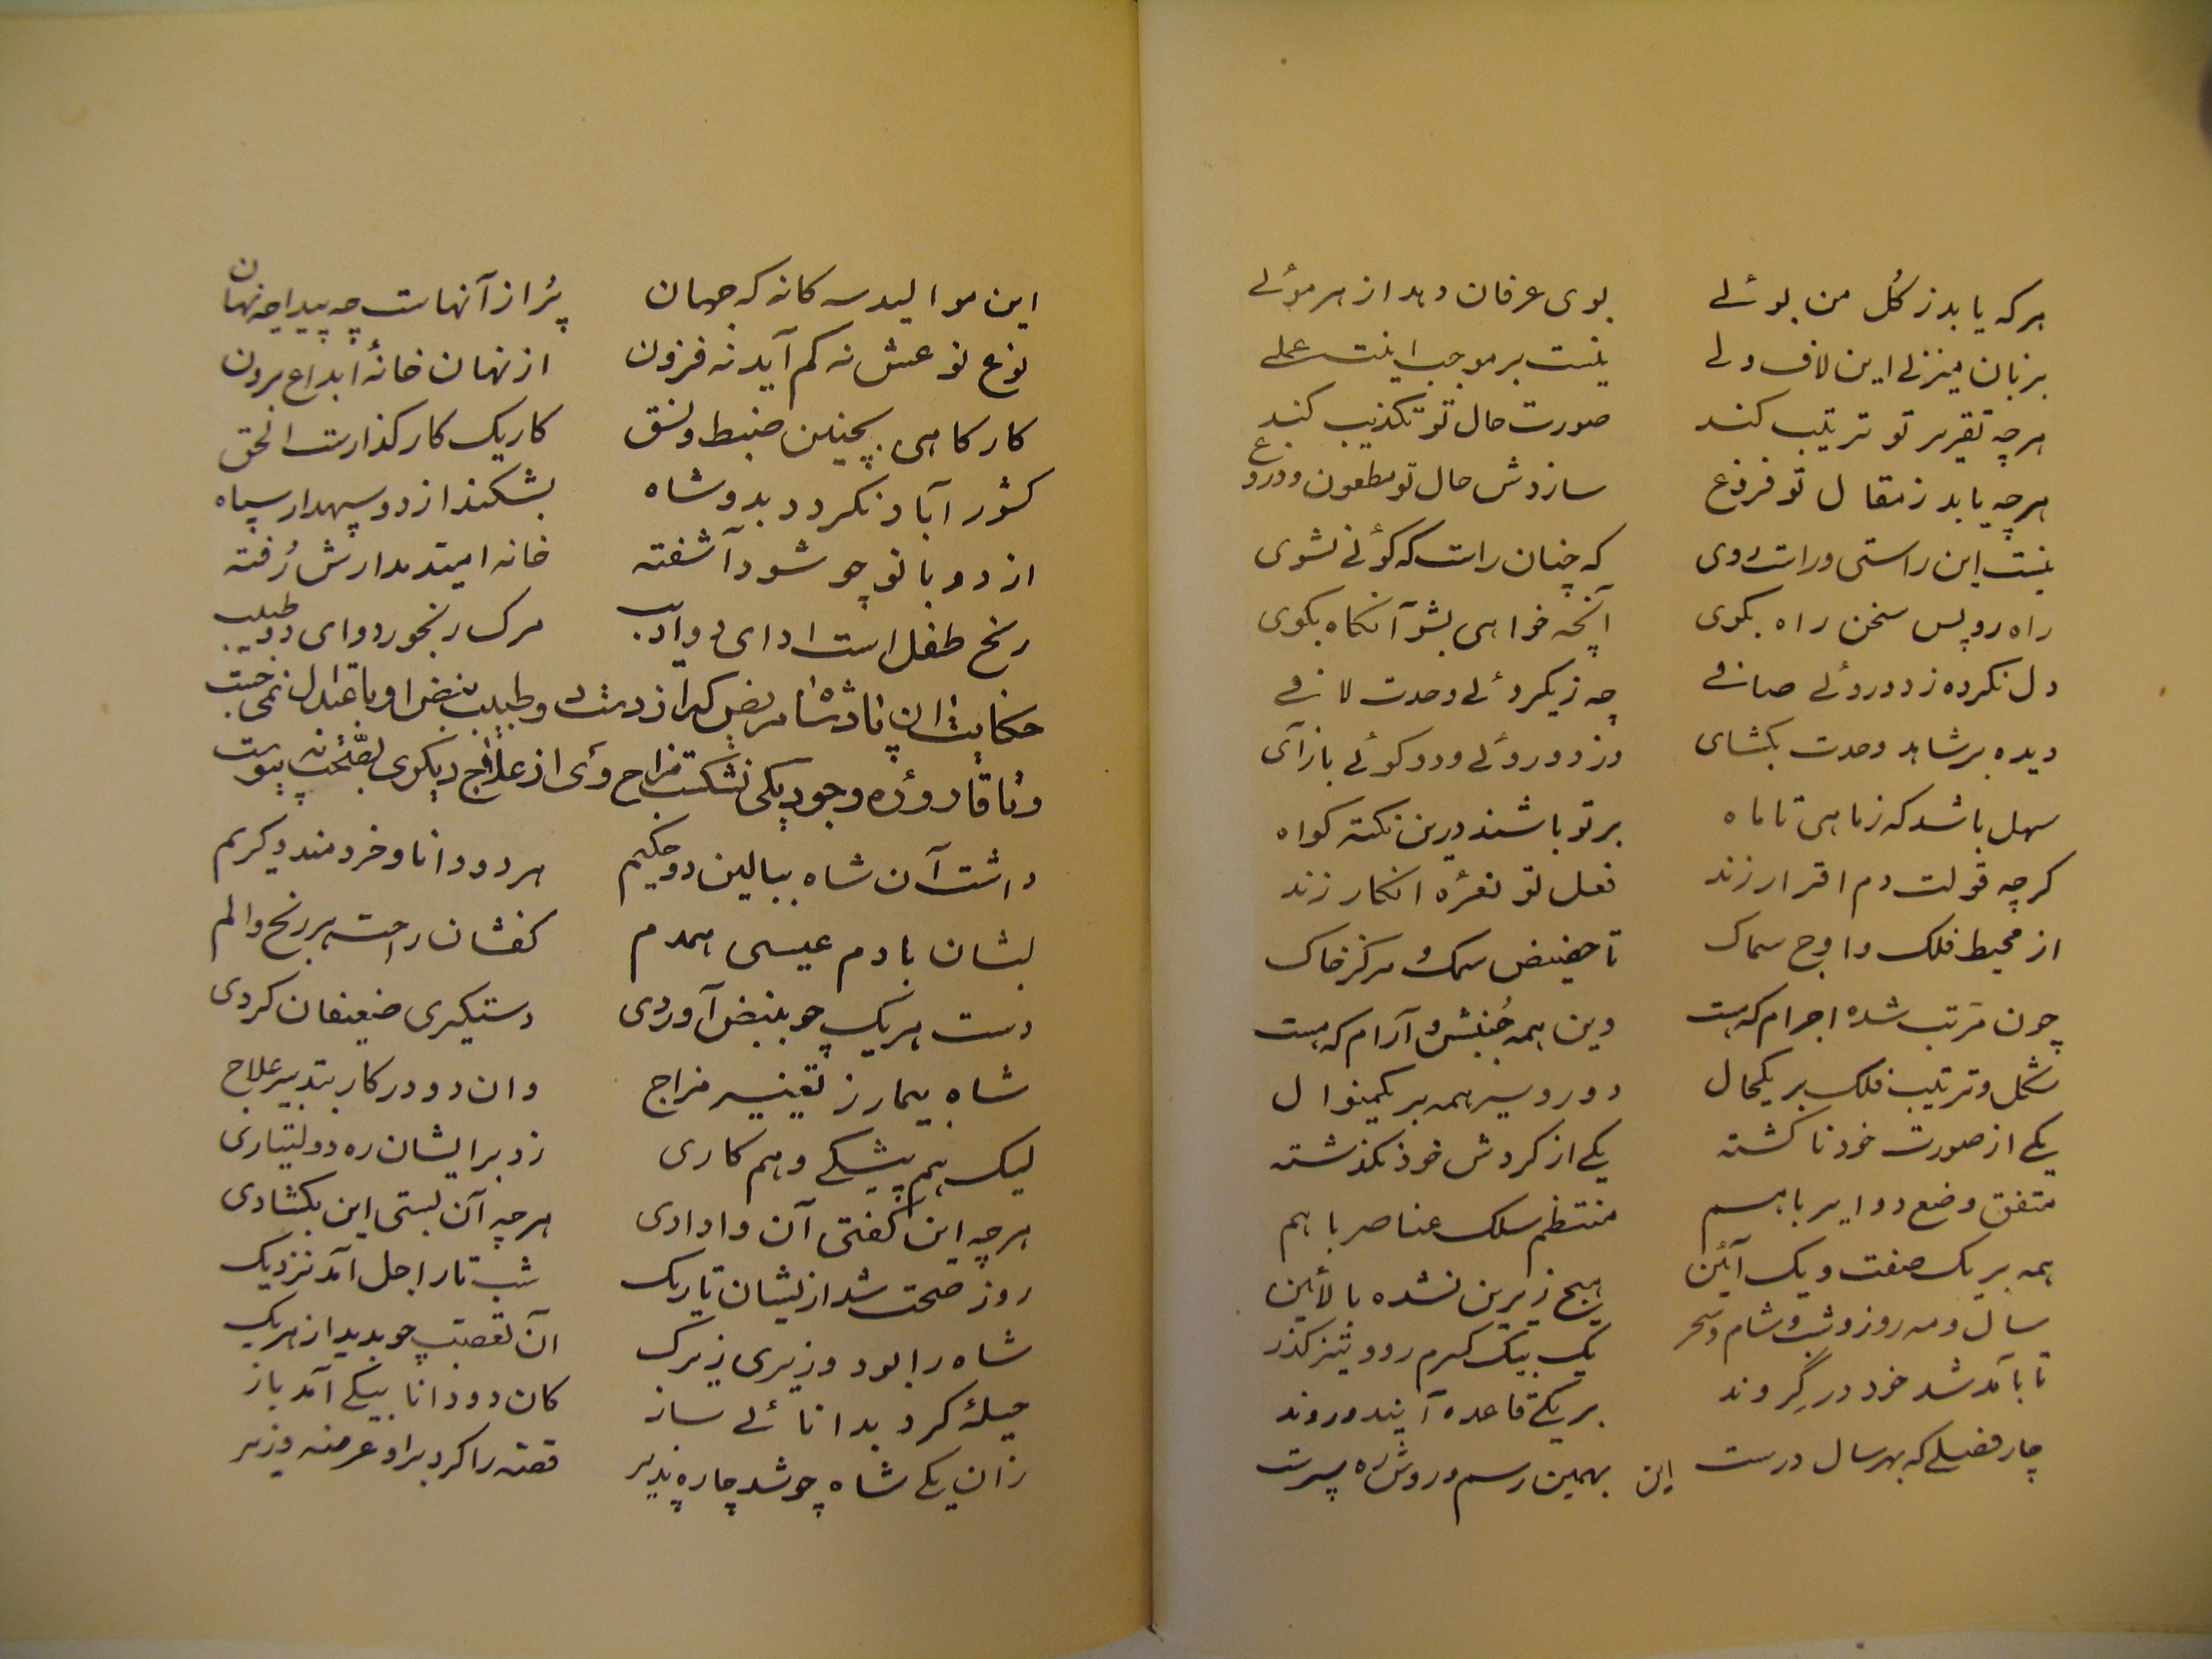 هر که یابد ز گل من بوئے بوی عرفان دهد از هر موئے
بزبان میزنے این لاف ولے نیست بر موجب اینت عملے
هر چه تقریر تو ترتیب کند صورت حال تو تکذیب کند
هر چه یابد ز مقال تو فروغ سازدش حال تو مطعون دروغ
نیست این راستی و راست روی که چنان راست که گوئے نشوی
راه رو پس سخن راه بگوی آنچه خواهی بشو آنگاه بگوی
دل نکرده ز دوروئے صافے چه ز یکروئے وحدت لافے
دیده بر شاهد وحدت بگشای وز دوروئے و دوگوئے بازآی
سهل باشد که ز ماهی تا ماه بر تو باشند درین نکته گواه
گرچه قولت دم اقرار زند فعل تو نعرهٔ انکار زند
از محیط فلک و اوج سماک تا حضیض سمک و مرکز خاک
چون مرتب شده اجرام که هست وین همه جنبش و آرام که هست
شکل و ترتیب فلک بر یکحال دور و سیر همه بر یکمنوال
یکے از صورت خود ناگشته یکے از گردش خود نگذشته
متفق وضع دوایر باهم منتظم سلک عناصر باهم
همه بر یک صفت و یک آئین هیچ زیرین نشده بالائین
سال و مه روز و شب و شام و سحر یک بیک گرم رو و تیز گذر
تا بآمد شد خود در گروند بر یکے قاعده آیند و روند
چار فصلے که بهر سال درست بهمین رسم و روش ره پسرست
این
این موالید سه کانه که جهان پر از آنهاست چه پیدا چه نهان
نوع نوعش نه کم آید نه فزون از نهان خانهٔ ابداع برون
کارکاهی بچنین ضبط و نسق کار یک کارگذارست الحق
کشور آباد نگردد بدو شاه بشکند از دو سپهدار سپاه
از دو بانو چو شود آشفته خانه امید مدارش رُفته
رنج طفل است ادای دو ادیب مرک رنجور دوای دو طبیب
داشت آن شاه ببالین دو حکیم هر دو دانا و خردمند و کریم
لبشان با دم عیسی همدم کفشان راحت هر رنج و الم
دست هر یک چو بنبض آوردی دستگیری ضعیفان کردی
شاه بیمار ز تغییر مزاج وان دو در کار بتدبیر علاج
لیک هم پیشکے و هم کاری زد بر ایشان ره دولتیاری
هر چه این گفتی آن وادادی هر چه آن بستی این بگشادی
روز صحت شد ازیشان تاریک شب تار اجل آمد نزدیک
شاه را بود وزیری زیرک آن تعصب چو بدید از هر یک
حیلهٔ کرد بدانائے ساز کان دو دانا بیکے آمد باز
زان یکے شاه چو شد چاره پذیر قصه را کرد بر او عرضه وزیر